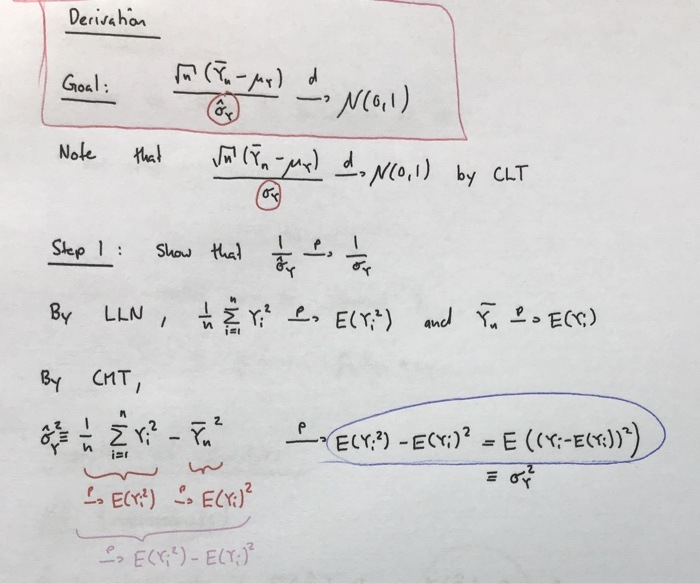 Derivation
Goal: √n (Ȳₙ - μ_Y) / σ̂_Y →d N(0,1)
Note that √n (Ȳₙ - μ_Y) / σ_Y →d N(0,1) by CLT
Step 1: Show that 1/σ̂_Y →p 1/σ_Y
By LLN, 1/n Σᵢ₌₁ⁿ Yᵢ² →p E(Yᵢ²) and Ȳₙ →p E(Yᵢ)
By CMT,
σ̂²_Y ≡ 1/n Σᵢ₌₁ⁿ Yᵢ² - Ȳₙ² →p E(Yᵢ²) - E(Yᵢ)² = E((Yᵢ-E(Yᵢ))²)
≡ σ²_Y
→p E(Yᵢ²) →p E(Yᵢ)²
→p E(Yᵢ²) - E(Yᵢ)²